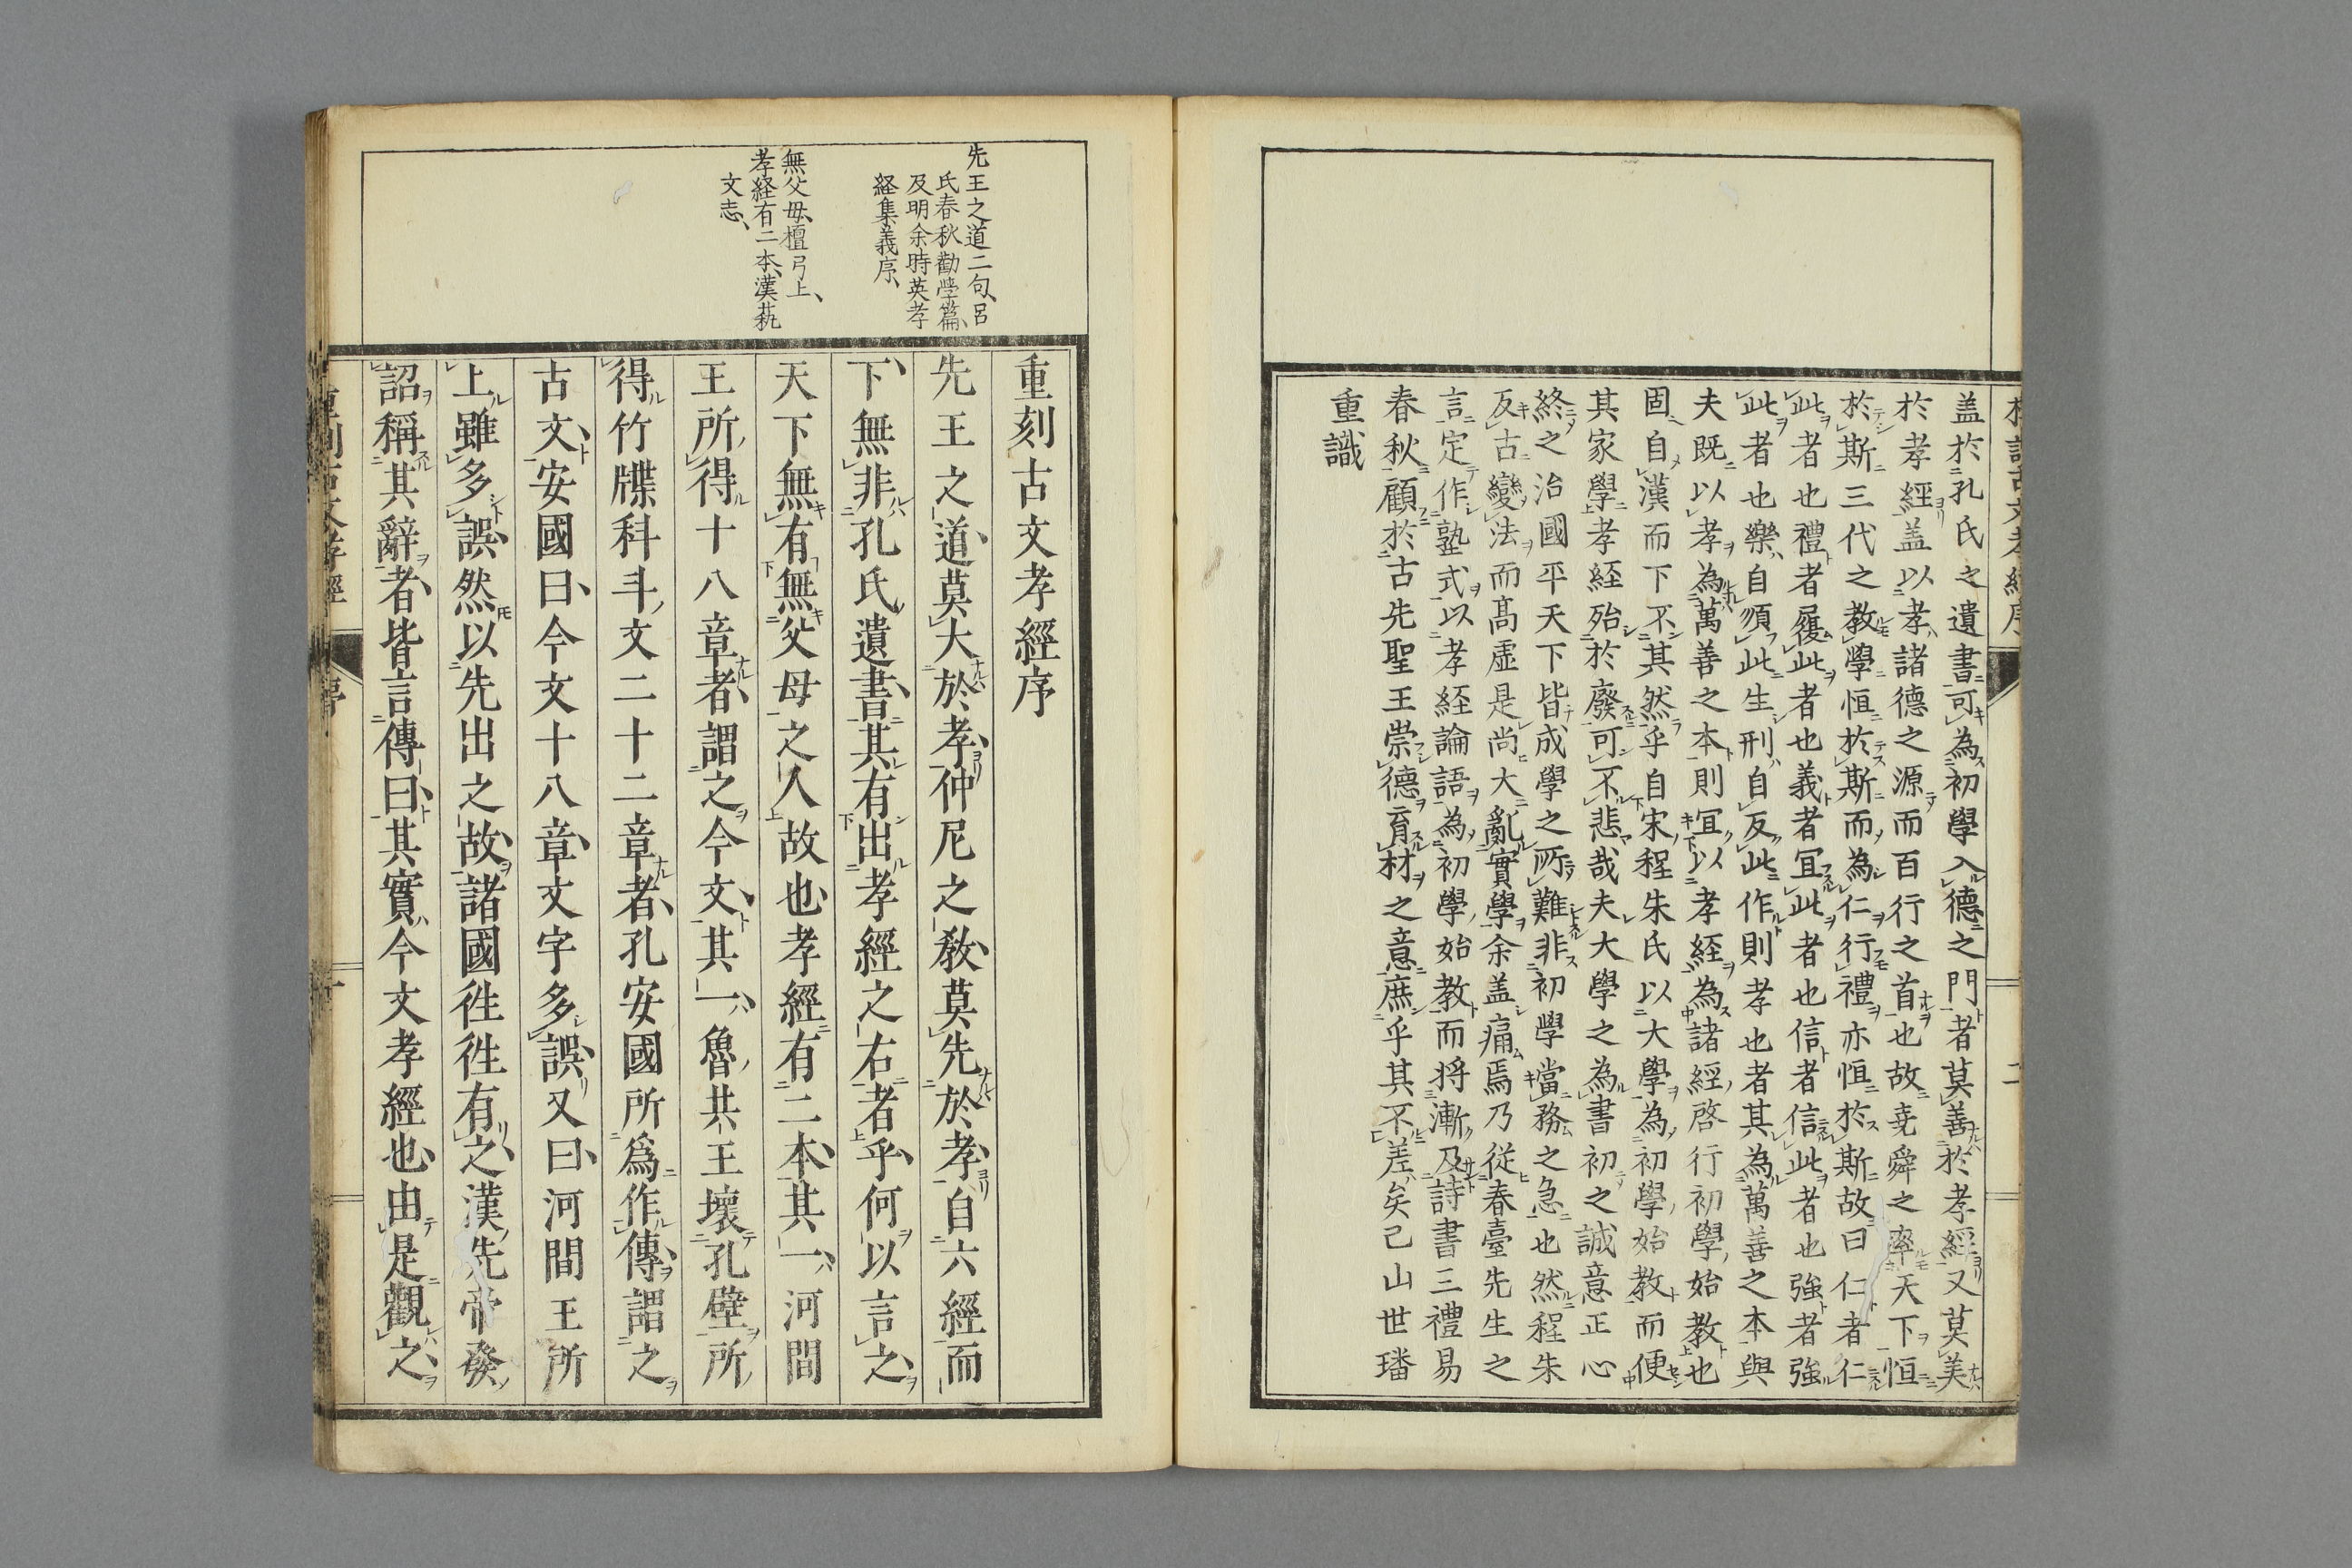 盖於孔氏之遺書可為初學入德之門者莫善於孝經又莫美
於孝經盖以孝諸德之源而百行之首也故尭舜之率天下恒
於斯三代之教學恒於斯而為仁行禮亦恒於斯故曰仁者仁
此者也禮者履此者也義者冝此者也信者信此者也強者強
此者也樂自順此生刑自反此作則孝也者其為萬善之本與
夫既以孝為萬善之本則冝以孝経為諸經啓行初學始教也
固自漢而下不其然乎自宋程朱氏以大學為初學始教而便
其家學孝経殆於廢可不悲哉夫大學之為書初之誠意正心
終之治國平天下皆成學之所難非初學當務之急也然程朱
反古變法而髙虚是尚大亂實學余盖痛焉乃従春臺先生之
言定作塾式以孝経論語為初學始教而将漸及詩書三禮易
春秋顧於古先聖王崇德育材之意庶乎其不差矣己山世璠
重識
先王之道二句、呂
氏春秋勸學篇、
及明余時英孝
経集義序、
無父母、檀弓上、
孝経有二本、漢藝
文志、
重刻古文孝經序
先王之道、莫大於孝、仲尼之教、莫先於孝、自六經而
下、無非孔氏遺書、其有出孝經之右者乎、何以言之、
天下無有無父母之人故也、孝經有二本、其一、河間
王所得十八章者、謂之今文、其一、魯共王壞孔壁所
得竹牒科斗文二十二章者、孔安國所爲作傳、謂之
古文、安國曰、今文十八章、文字多誤、又曰、河間王所
上雖多誤、然以先出之故、諸國徃徃有之、漢先帝發
詔稱其辭者、皆言傳曰、其實今文孝經也、由是觀之、